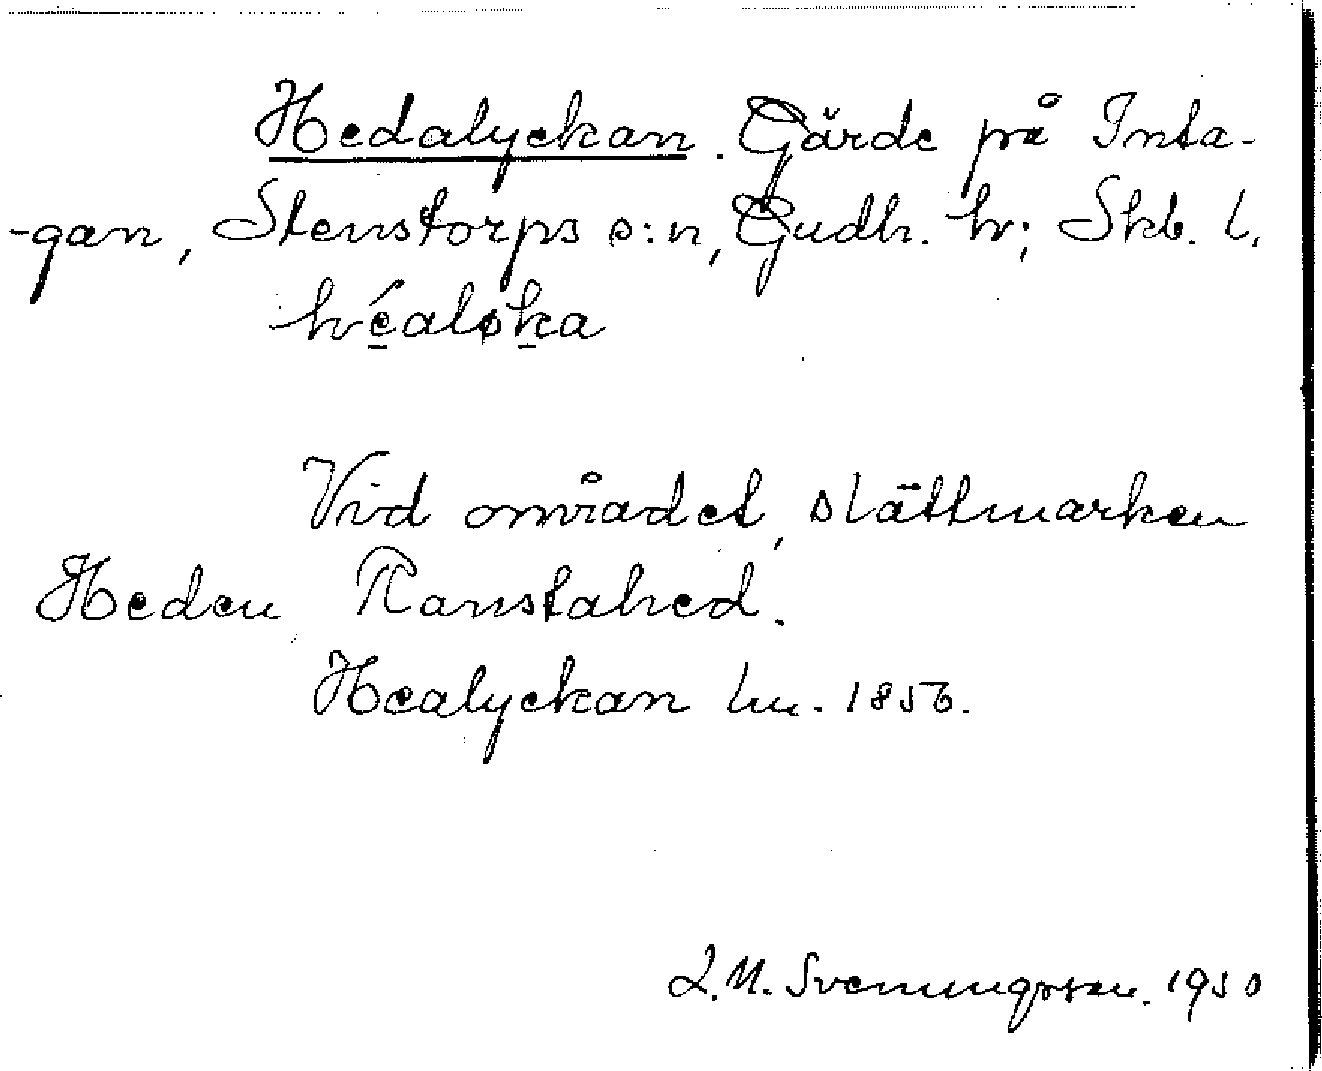 Hedalyckan. Gärde på Inta-
-gan, Stenstorps s:n, Gudh. hr; Skb. l.
héaløka
Vid området, slättmarken
Heden Ranstahed.
Healyckan lm. 1856.
L.M. Svenungsson. 1950